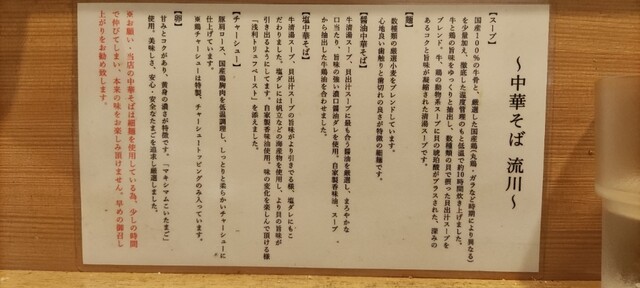 ～中華そば 流川～
【スープ】
国産100%の牛骨と、厳選した国産鶏(丸鶏・ガラなど時期により異なる)
を少量加え、徹底した温度管理のもと低温で約10時間炊き上げました。
牛と鶏の旨味をゆっくりと抽出し、数種類の貝で摂った貝出汁スープを
ブレンド。牛、鶏の動物系スープに貝の琥珀酸がプラスされた、深みの
あるコクと旨味が凝縮された清湯スープです。
【麺】
数種類の厳選小麦をブレンドしています。
心地良い歯触りと歯切れの良さが特徴の細麺です。
【醤油中華そば】
牛清湯スープ、貝出汁スープに最も合う醤油を厳選し、まろやかな
口当たり、旨味の強い濃口醤油ダレを使用。自家製香味油、スープ
から抽出した牛鶏油を合わせました。
【塩中華そば】
牛清湯スープ、貝出汁スープの旨味がより引きでる様、塩ダレにもこ
だわりました。塩ダレには帆立などの海産物を使用し、より貝の旨味が
引き出るようにしてます。自家製香味油使用。味の変化を楽しんで頂ける様
「浅利トリュフペースト」を添えました。
【チャーシュー】
豚肩ロース、国産鶏胸肉を低温調理し、しっとりと柔らかいチャーシューに
仕上げています。
※鶏チャーシューは特製、チャーシュートッピングのみ入っています。
【卵】
甘みとコクがあり、黄身の濃さが特徴です。「マキシマムこいたまご」
使用。美味しさ、安心・安全なたまごを追求し厳選しました。
※お願い・当店の中華そばは細麺を使用している為、少しの時間
で伸びてしまい、本来の味をお楽しみ頂けません。早めの御召し
上がりをお勧め致します。